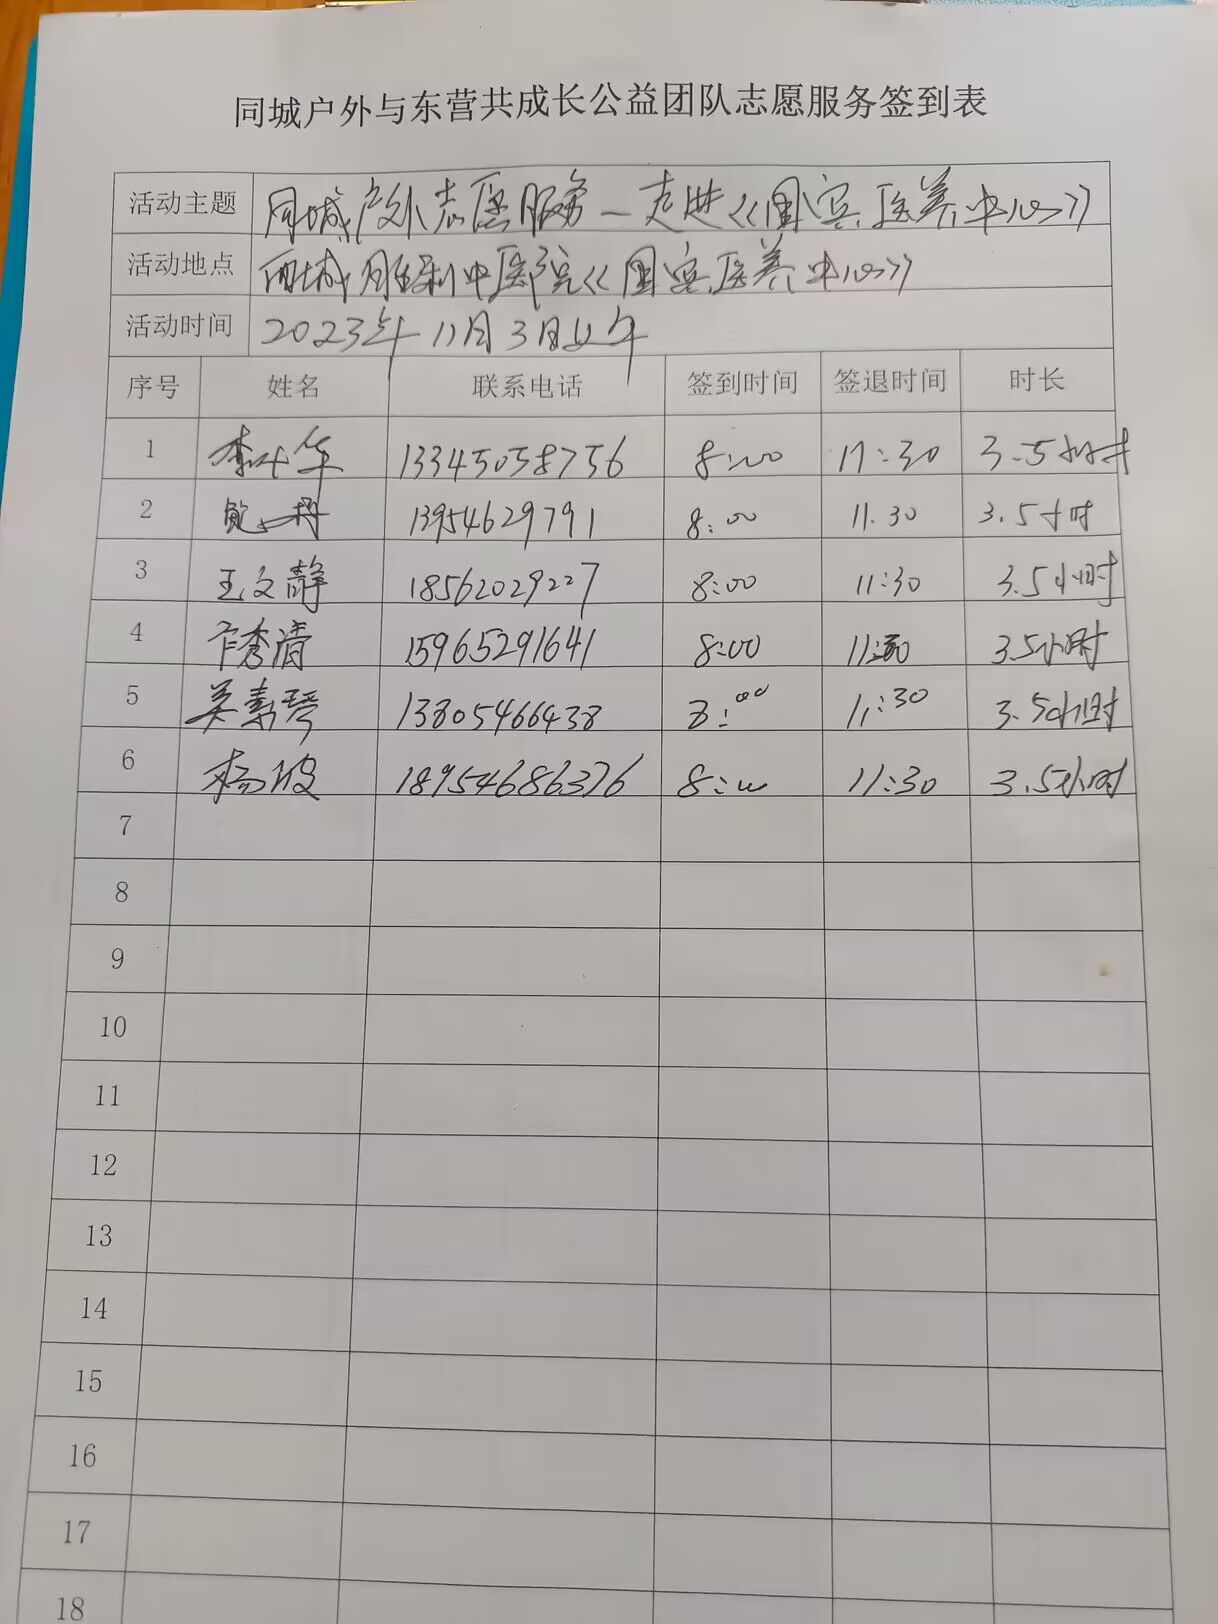 同城户外与东营共成长公益团队志愿服务签到表
活动主题 同城户外志愿服务—走进《国宾医养中心》
活动地点 西城胜利中医院《国宾医养中心》
活动时间 2023年11月3日上午
序号 姓名 联系电话 签到时间 签退时间 时长
1 李叶华 13345058756 8:00 11:30 3.5小时
2 13954629791 8:00 11.30 3.5小时
3 王文静 18562029227 8:00 11:30 3.5小时
4 卞秀清 15965291641 8:00 11:30 3.5小时
5 吴素琴 13805466438 8:00 11:30 3.5小时
6 杨波 18954686376 8:00 11:30 3.5小时
7
8
9
10
11
12
13
14
15
16
17
18